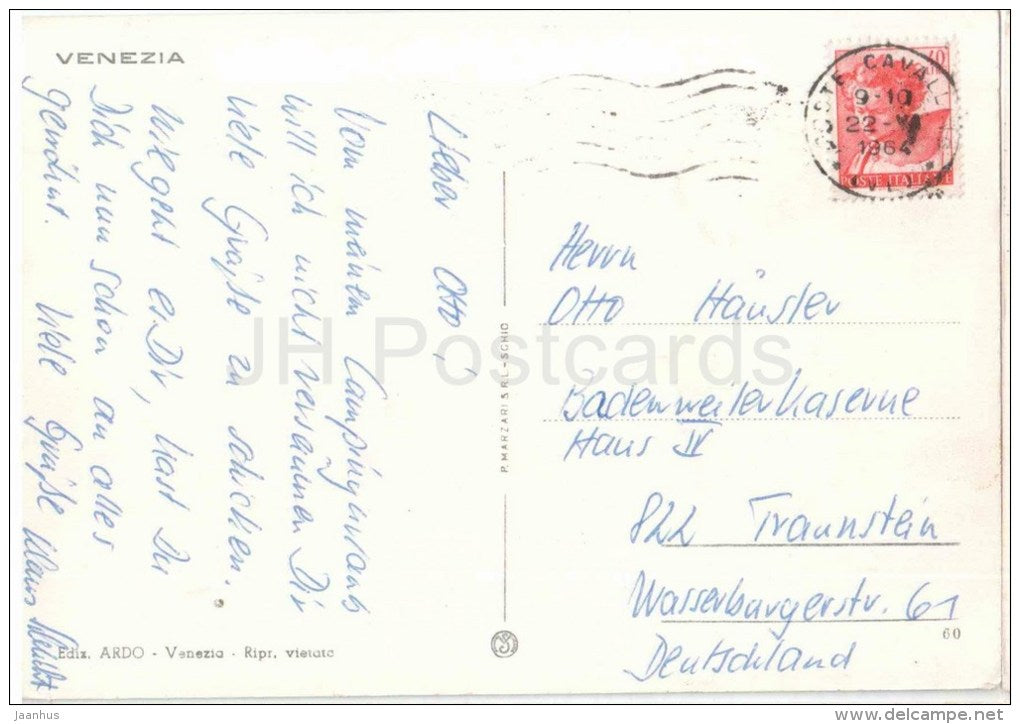 VENEZIA
Lieber Otto,
Vom meinem Campingurlaub
will ich nicht versäumen Dir
viele Grüße zu schicken.
Wie geht es Dir, hast Du
Dich nun schon an alles
gewöhnt. Viele Grüße Klaus
Ediz. ARDO - Venezia - Ripr. vietata
P. MARZARI S.R.L. - SCHIO
9-10
22-
1964
POSTE ITALIANE
Herrn
Otto Häusler
Badenweilerkaserne
Haus IV
822 Traunstein
Wasserburgerstr. 61
Deutschland
60
JH Postcards
jaanhus
www.delcampe.net